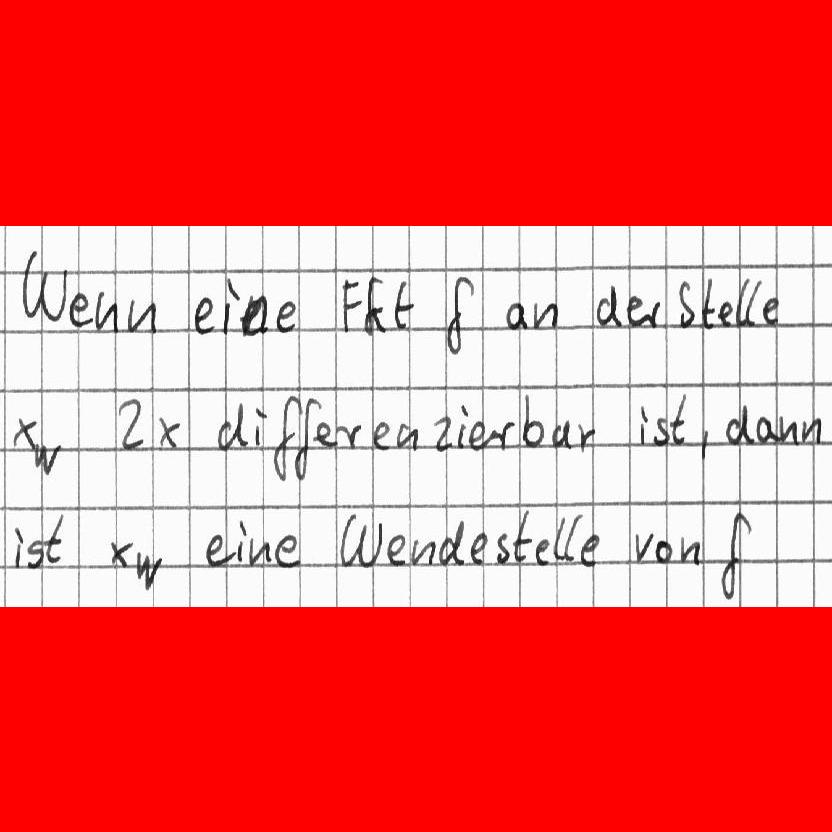 Wenn eine Fkt f an der Stelle
x_W 2x differenzierbar ist, dann
ist x_W eine Wendestelle von f